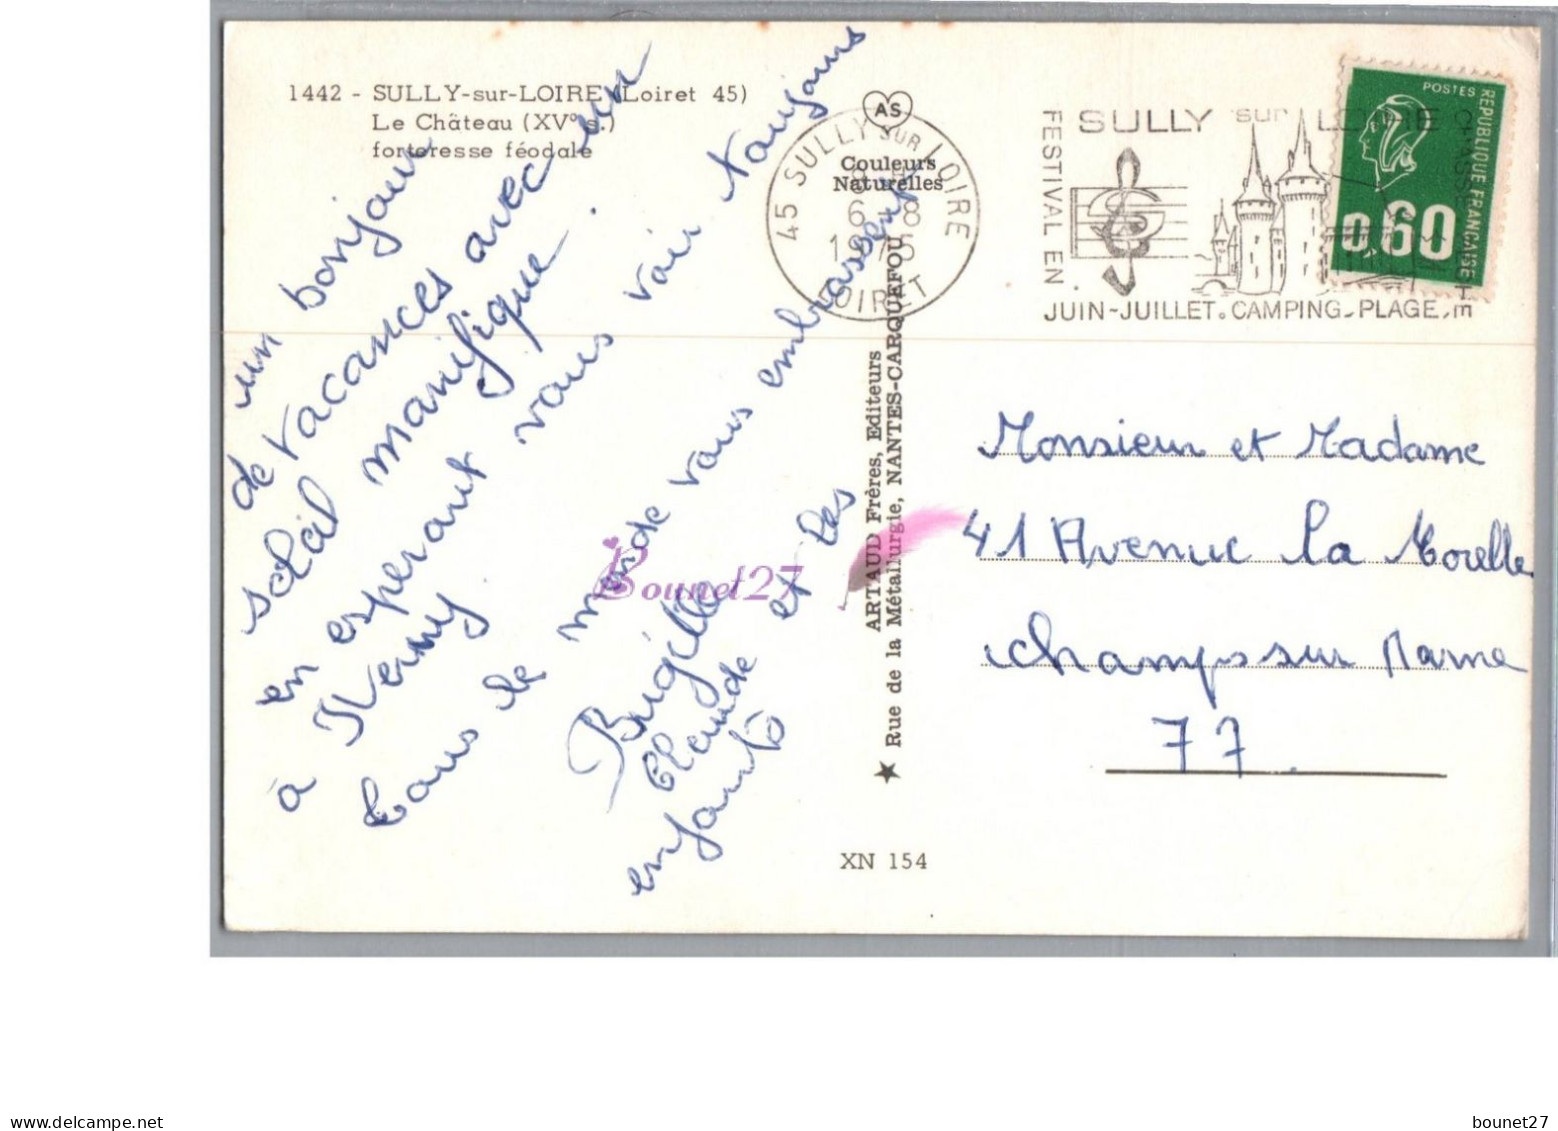 1442 - SULLY-sur-LOIRE (Loiret 45)
Le Château (XV° s.)
forteresse féodale
un bonjour
de vacances avec un
soleil manifique.
en esperant vous voir toujours
à Nerny
tous le monde vous embrassent
Brigitte
Claude et les
enfants
AS
Couleurs
Naturelles
45 SULLY SUR LOIRE
6 8
LOIRET
ARTAUD Frères, Editeurs
Rue de la Métallurgie, NANTES-CARQUEFOU
XN 154
SULLY sur LOIRE
FESTIVAL EN
JUIN-JUILLET. CAMPING-PLAGE
POSTES
REPUBLIQUE FRANÇAISE
0,60
Monsieur et Madame
41 Avenue la
Champs sur Marne
77
Bounet27
bounet27